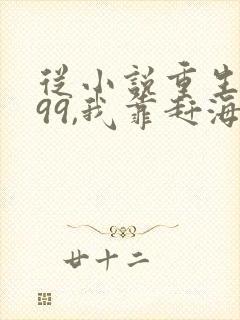 從小說重生
99,我靠赶海
廿十二